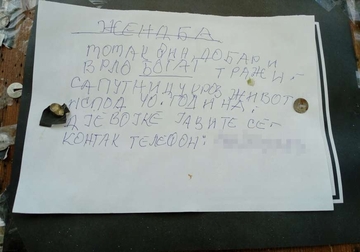 ЖЕНДБА
МОМАК ФИН, ДОБАР И
ВРЛО БОГАТ ТРАЖИ-
САПУТНИЦУ КРОЗ ЖИВОТ
ИСПОД 40. ГОДИНА.
ДЈЕВОЈКЕ ЈАВИТЕ СЕ-
КОНТАК ТЕЛЕФОН: